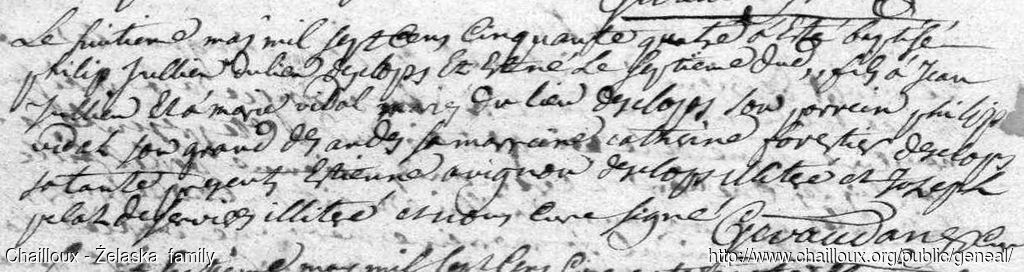 Le huitieme maj mil sept cens cinquante quatre a été baptisé
philip Jullien du lieu desclops Et Est né Le septieme dud. fils à Jean
Jullien Et à marie vidal mariés du lieu desclops son parrein philip
vidal son grand sa marreine catherine forestier desclops
sa tante presens Estienne avignon desclops illitré et Joseph
pelat de illitré et nous Curé signé
Gevaudan
Chailloux - Żelaska family
http://www.chailloux.org/public/geneal/